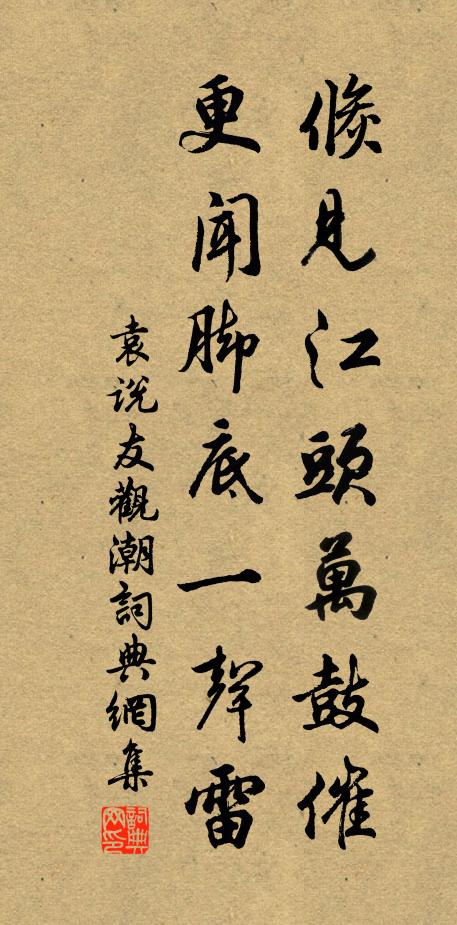 倐見江頭萬鼓催
更聞脚底一聲雷
袁説友觀潮詞典網集
詞典网印